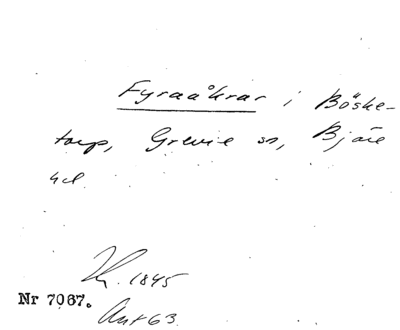 Fyraåkrar i Böske-
torp, Grevie sn, Bjäre
hd
1845
Nr 7067.
Ant 63